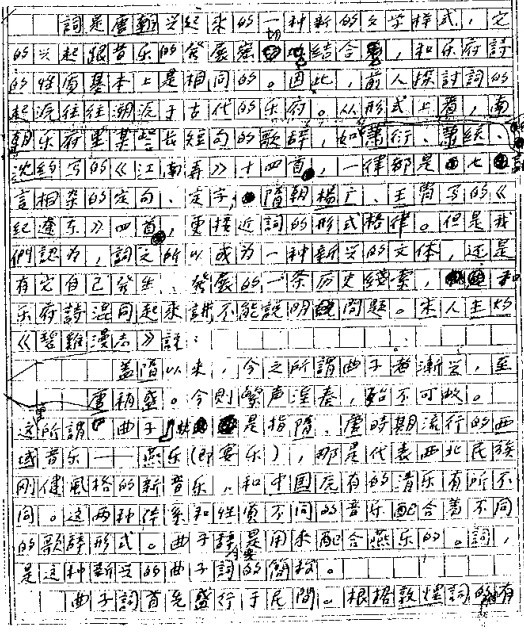 詞是唐朝兴起来的一种新的文学样式，它
的兴起跟音乐的發展密切結合，和乐府詩
的性質基本上是相同的。因此，前人探討詞的
起源往往溯源于古代的乐府。从形式上看，南
朝乐府里某些長短句的歌辞，如蕭衍、蕭統、
沈約写的《江南弄》十四首，一律都是七言
言相杂的定句、定字，隋朝楊广、王胄写的《
紀遼东》四首，更接近詞的形式格律。但是我
們認为，詞之所以成为一种新兴的文体，还是
有它自己發生、發展的一条历史綫索，和
乐府詩混同起來講不能説明問題。宋人王灼
《碧雞漫志》説：
蓋隋以来，今之所謂曲子者漸兴，至
唐稍盛。今则繁声淫奏，殆不可数。
这所謂「曲子」是指隋、唐時期流行的西
域音乐——燕乐(即宴乐)，那是代表西北民族
刚健風格的新音乐，和中国原有的清乐有所不
同。这两种体系和性質不同的音乐配合着不同
的歌辞形式。曲子詞是用来配合燕乐的。詞，
是这种新兴的曲子詞的簡称。
曲子詞首先盛行于民間。根据敦煌詞的有